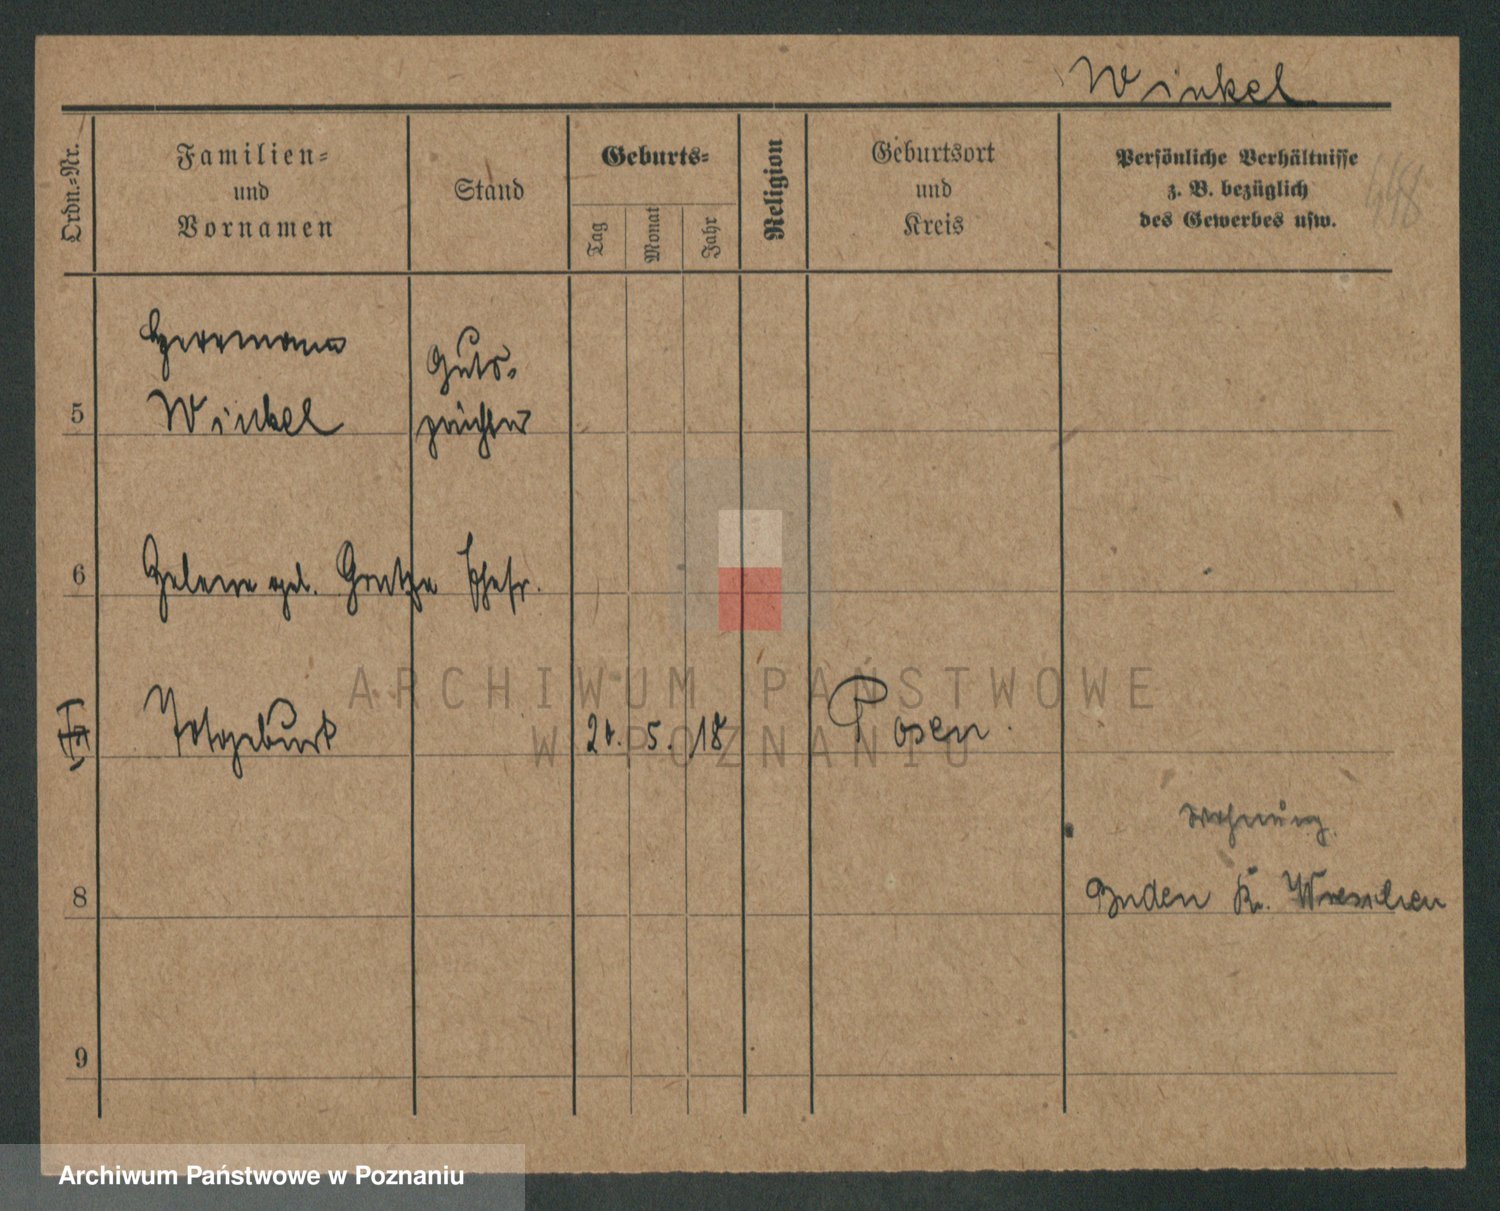 Winkel
Ordn.-Nr.
Familien-
und
Vornamen
Stand
Geburts-
Tag
Monat
Jahr
Religion
Geburtsort
und
Kreis
Persönliche Verhältnisse
z. B. bezüglich
des Gewerbes usw.
448
Herrmann
Guts-
5
Winkel
pächter
6
Helene geb. Ehefr.
Totgeburt
5. 18
Posen.
Wohnung
8
Kr. Wreschen
9
ARCHIWUM PAŃSTWOWE
W POZNANIU
Archiwum Państwowe w Poznaniu